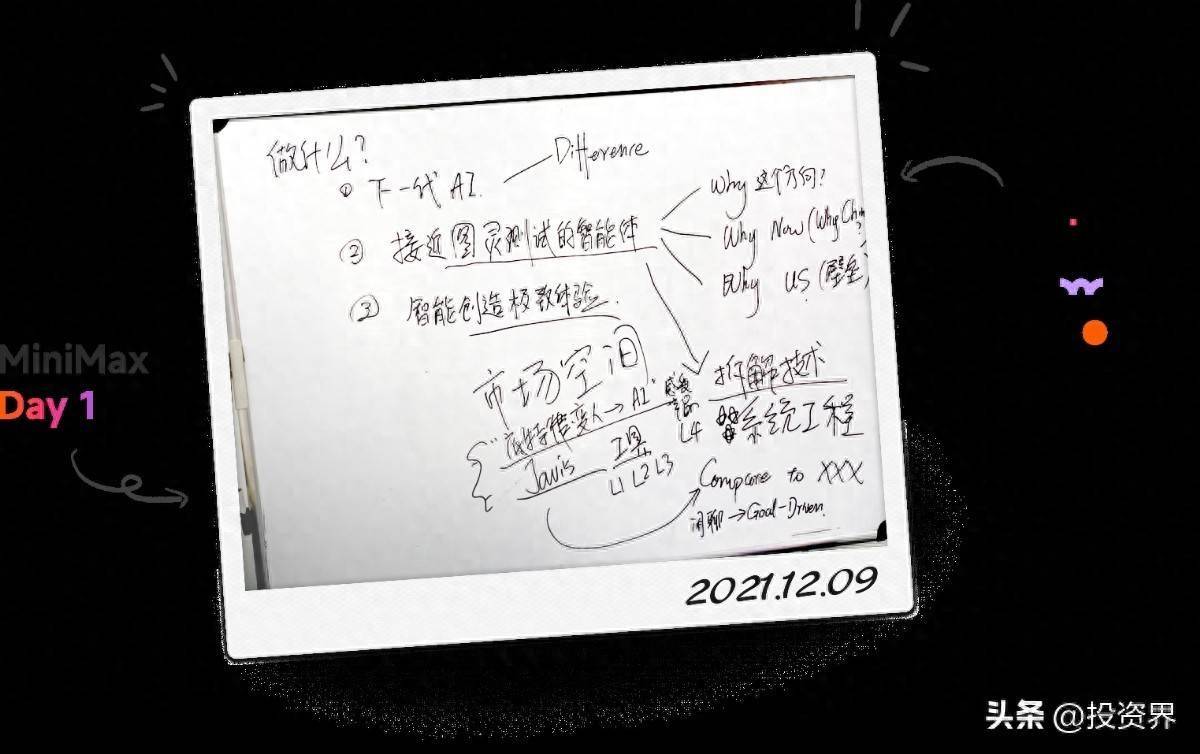 做什么?
① 下一代 AI. Difference
② 接近图灵测试的智能体
Why 这个方向?
Why Now (Why Ch
?
Why US (壁垒)
③ 智能创造极致体验.
市场空间
拆解技术
"底特律变人→AI"
L4 系统工程
{ Javis 工具
L1 L2 L3
Compare to XXX
闲聊→Goal-Driven.
2021.12.09
MiniMax
Day 1
头条 @投资界